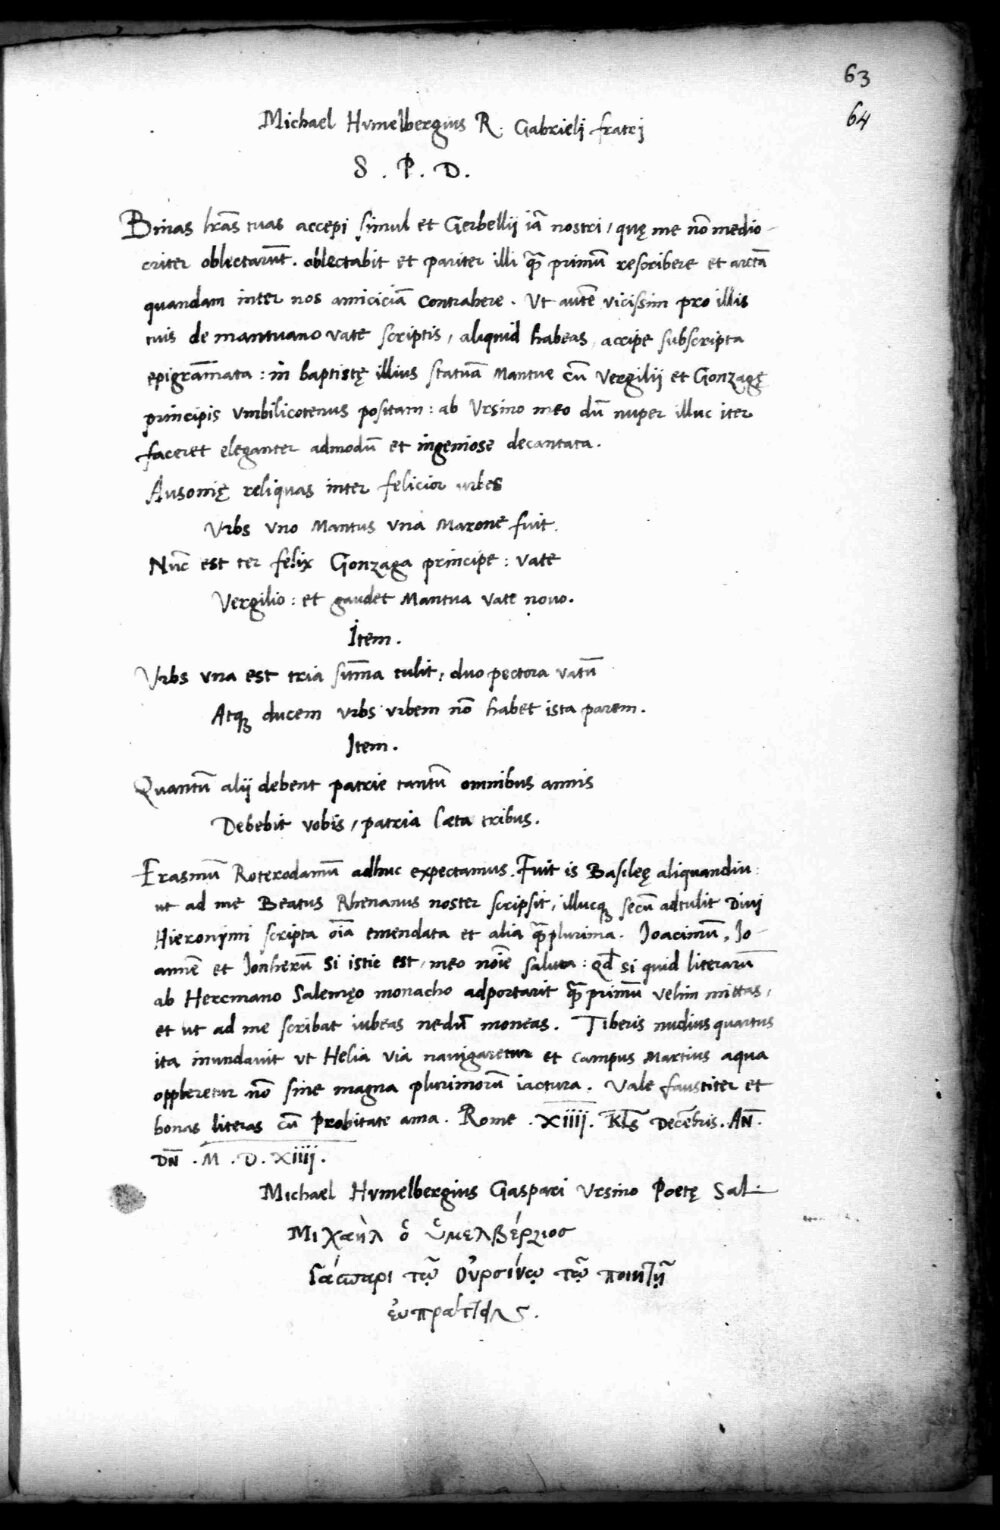 63
64
Michael Hvmelbergius R. Gabrieli fratri
S . P . D .
Binas lr̃as tuas accepi simul et Gerbellij iã nostri, quę me nõ medio-
criter oblectarũt. oblectabit et pariter illi qᷓ primũ rescribere et arctã
quandam inter nos amiciciã contrahere. Vt autẽ vicissim pro illis
tuis de mantuano vate scriptis, aliquid habeas, accipe subscripta
epigram̃ata : in baptistę illius statuã Mantue cũ Vergilij et Gonzagę
principis vmbilicotenus positam : ab Vrsino meo dũ nuper illuc iter
faceret eleganter admodũ et ingeniose decantata.
Ausonię reliquas inter felicior urbes
Vrbs vno Mantus vna Marone fuit.
Nũc est ter felix Gonzaga principe : vate
Vergilio : et gaudet Mantua vate nouo.
Item.
Vrbs vna est tria sum̃a tulit, duo pectora vatũ
Atqꝫ ducem vrbs vrbem nõ habet ista parem.
Item.
Quantũ alij debent patrie tantũ omnibus annis
Debebit vobis, patria laeta tribus.
Erasmũ Roterodamũ adhuc expectamus. Fuit is Basileę aliquandiu :
ut ad me Beatus Rhenanus noster scripsit, illucqꝫ secũ adtulit Divi
Hieronymi scripta oĩa emendata et alia qᷓplurima. Joacimũ, Jo-
annẽ et Jonherũ si istic est, meo noĩe saluta : qđ si quid literarũ
ab Hercmano Salemęo monacho adportarit qᷓprimũ velim mittas,
et ut ad me scribat iubeas nedũ moneas. Tiberis nudius quartus
ita inundauit vt Helia via nauigaretur et campus Martius aqua
oppleretur nõ sine magna plurimorũ iactura. Vale faustiter et
bonas literas cũ Probitate ama. Rome . XIIII. Kl̃s Decẽbris. AÑ.
DÑ . M . D . XIIII.
Michael Hvmelbergius Gaspari Vrsino Poetę Sal.
Μιχαὴλ ὁ ὑμελβέργιος
Γάσπαρι τῷ Οὐρσίνῳ τῷ ποιητῇ